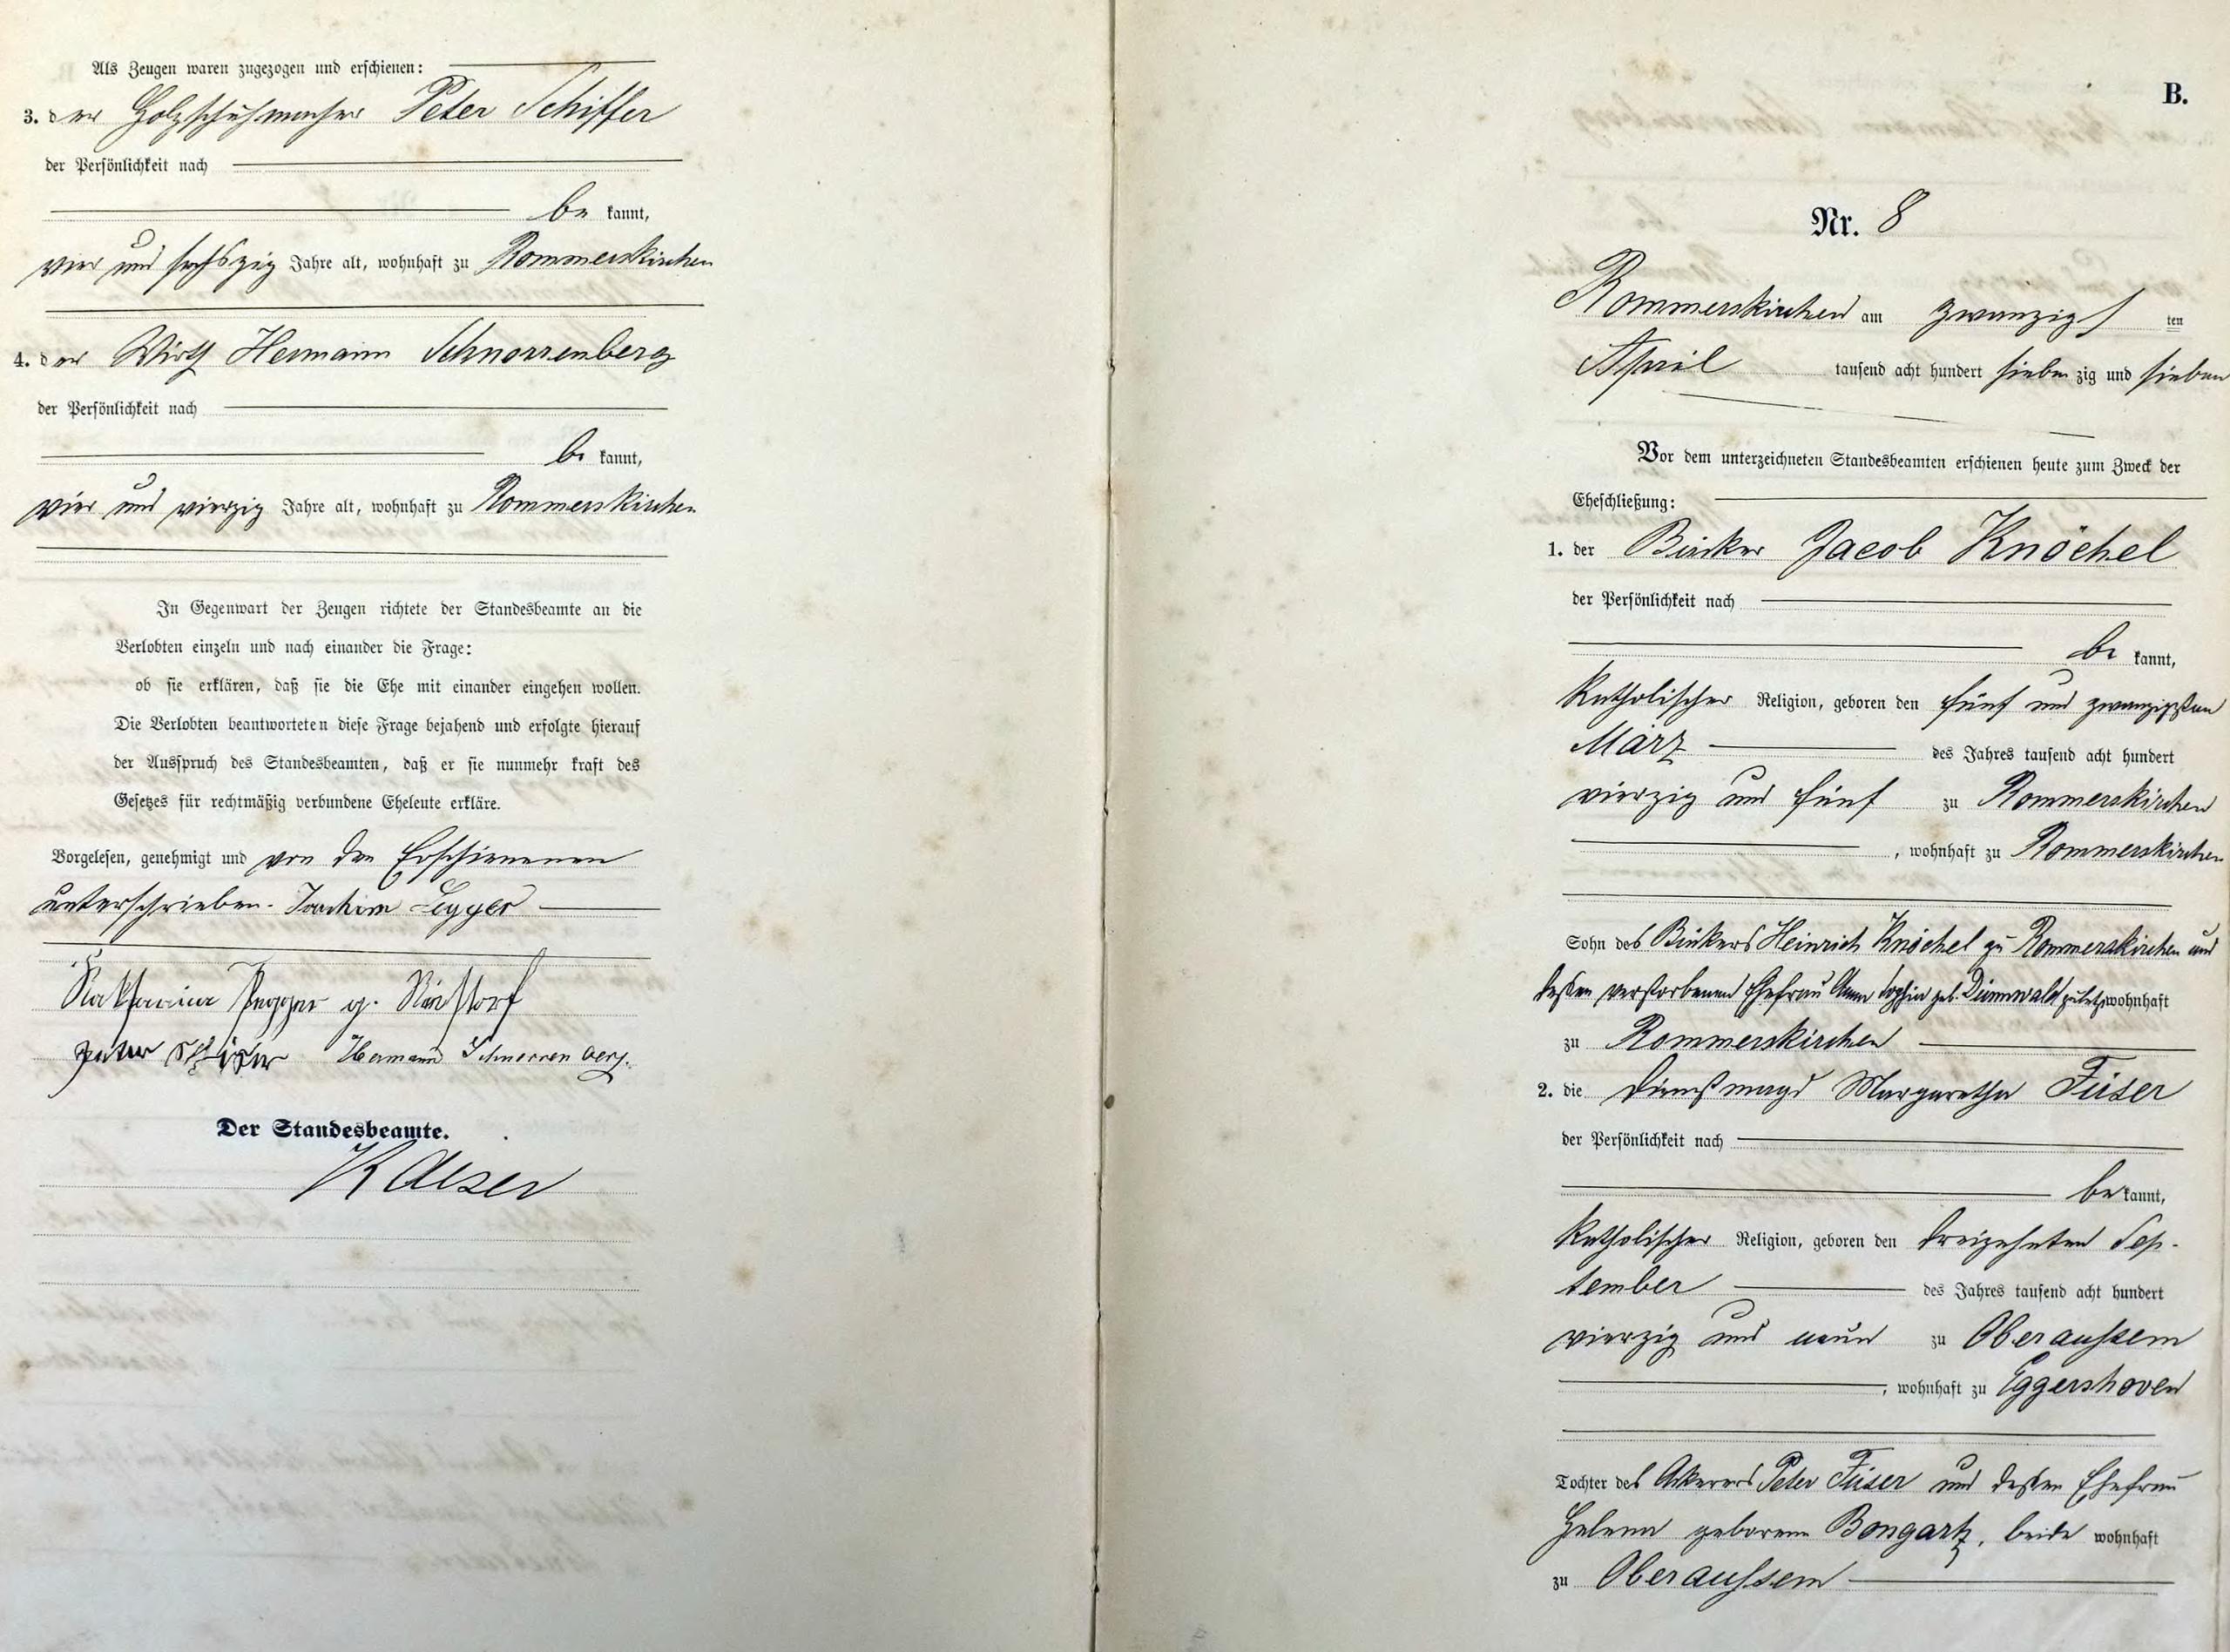 Als Zeugen waren zugezogen und erschienen:
3. der Holzschuhmacher Peter Schiffer
der Persönlichkeit nach
be kannt,
vier und sechszig Jahre alt, wohnhaft zu Rommerskirchen
4. der Wirth Hermann Schnorrenberg
der Persönlichkeit nach
be kannt,
vier und vierzig Jahre alt, wohnhaft zu Rommerskirchen
In Gegenwart der Zeugen richtete der Standesbeamte an die
Verlobten einzeln und nach einander die Frage:
ob sie erklären, daß sie die Ehe mit einander eingehen wollen.
Die Verlobten beantworteten diese Frage bejahend und erfolgte hierauf
der Ausspruch des Standesbeamten, daß er sie nunmehr kraft des
Gesetzes für rechtmäßig verbundene Eheleute erkläre.
Vorgelesen, genehmigt und von den Erschienenen
unterschrieben. Joachim
Katharina g.
Peter Schiffer Hermann Schnorrenberg.
Der Standesbeamte.
Kaiser
B.
Nr. 8
Rommerskirchen am zwanzigs ten
April tausend acht hundert sieben zig und sieben
Vor dem unterzeichneten Standesbeamten erschienen heute zum Zweck der
Eheschließung:
1. der Bäcker Jacob Knöchel
der Persönlichkeit nach
be kannt,
katholischer Religion, geboren den fünf und zwanzigsten
März des Jahres tausend acht hundert
vierzig und fünf zu Rommerskirchen
, wohnhaft zu Rommerskirchen
Sohn des Bäckers Heinrich Knöchel zu Rommerskirchen und
dessen verstorbenen Ehefrau Anna Sophia geb. Dünnwald zuletzt wohnhaft
zu Rommerskirchen
2. die Dienstmagd Margaretha Füser
der Persönlichkeit nach
be kannt,
katholischer Religion, geboren den dreizehnten Sep-
tember des Jahres tausend acht hundert
vierzig und neun zu Oberaußem
, wohnhaft zu Eggershoven
Tochter des Ackerers Peter Füser und dessen Ehefrau
Helena geborene Bongartz, beide wohnhaft
zu Oberaußem